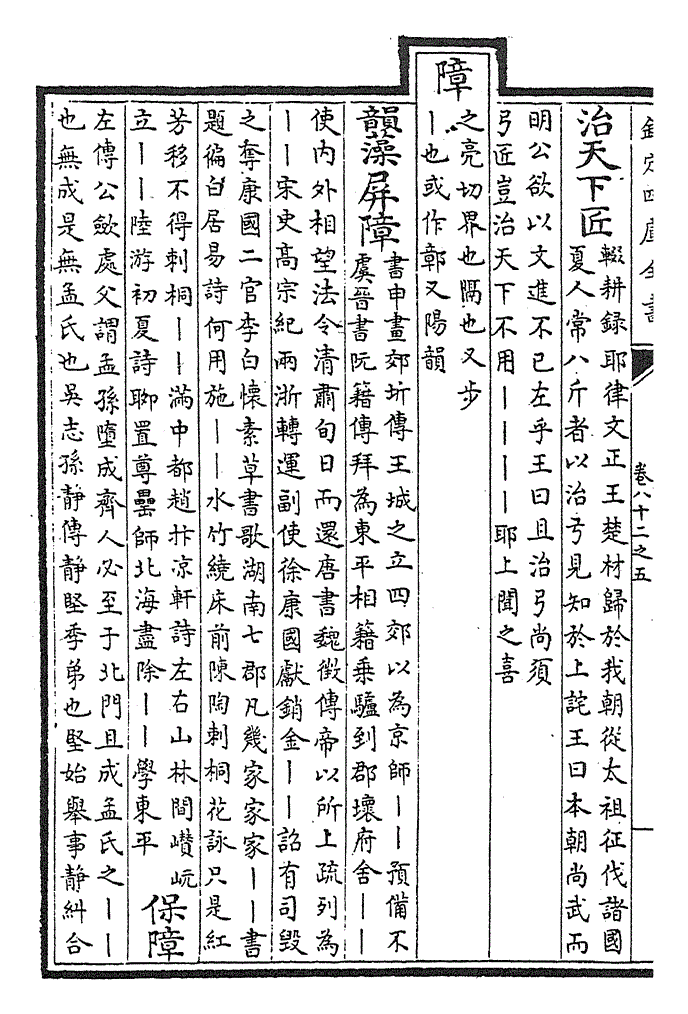 欽定四庫全書
卷八十二之五
治天下匠
輟耕録耶律文正王楚材歸於我朝從太祖征伐諸國
夏人常八斤者以治弓見知於上詫王曰本朝尚武而
明公欲以文進不已左乎王曰且治弓尚須
弓匠豈治天下不用丨丨丨丨耶上聞之喜
障
之亮切界也隔也又步
丨也或作鄣又陽韻
韻藻屏障
書申畫郊圻傳王城之立四郊以為京師丨丨預備不
虞晉書阮籍傳拜為東平相籍乗驢到郡壞府舍丨丨
使内外相望法令清肅旬日而還唐書魏徵傳帝以所上疏列為
丨丨宋史髙宗紀兩浙轉運副使徐康國獻銷金丨丨詔有司毁
之奪康國二官李白懷素草書歌湖南七郡凡幾家家家丨丨書
題徧白居易詩何用施丨丨水竹繞床前陳陶刺桐花詠只是紅
芳移不得刺桐丨丨滿中都趙抃凉軒詩左右山林間巑岏
立丨丨陸游初夏詩聊置尊罍師北海盡除丨丨學東平
保障
左傳公斂處父謂孟孫墮成齊人必至于北門且成孟氏之丨丨
也無成是無孟氏也吳志孫靜傳靜堅季弟也堅始舉事靜糾合